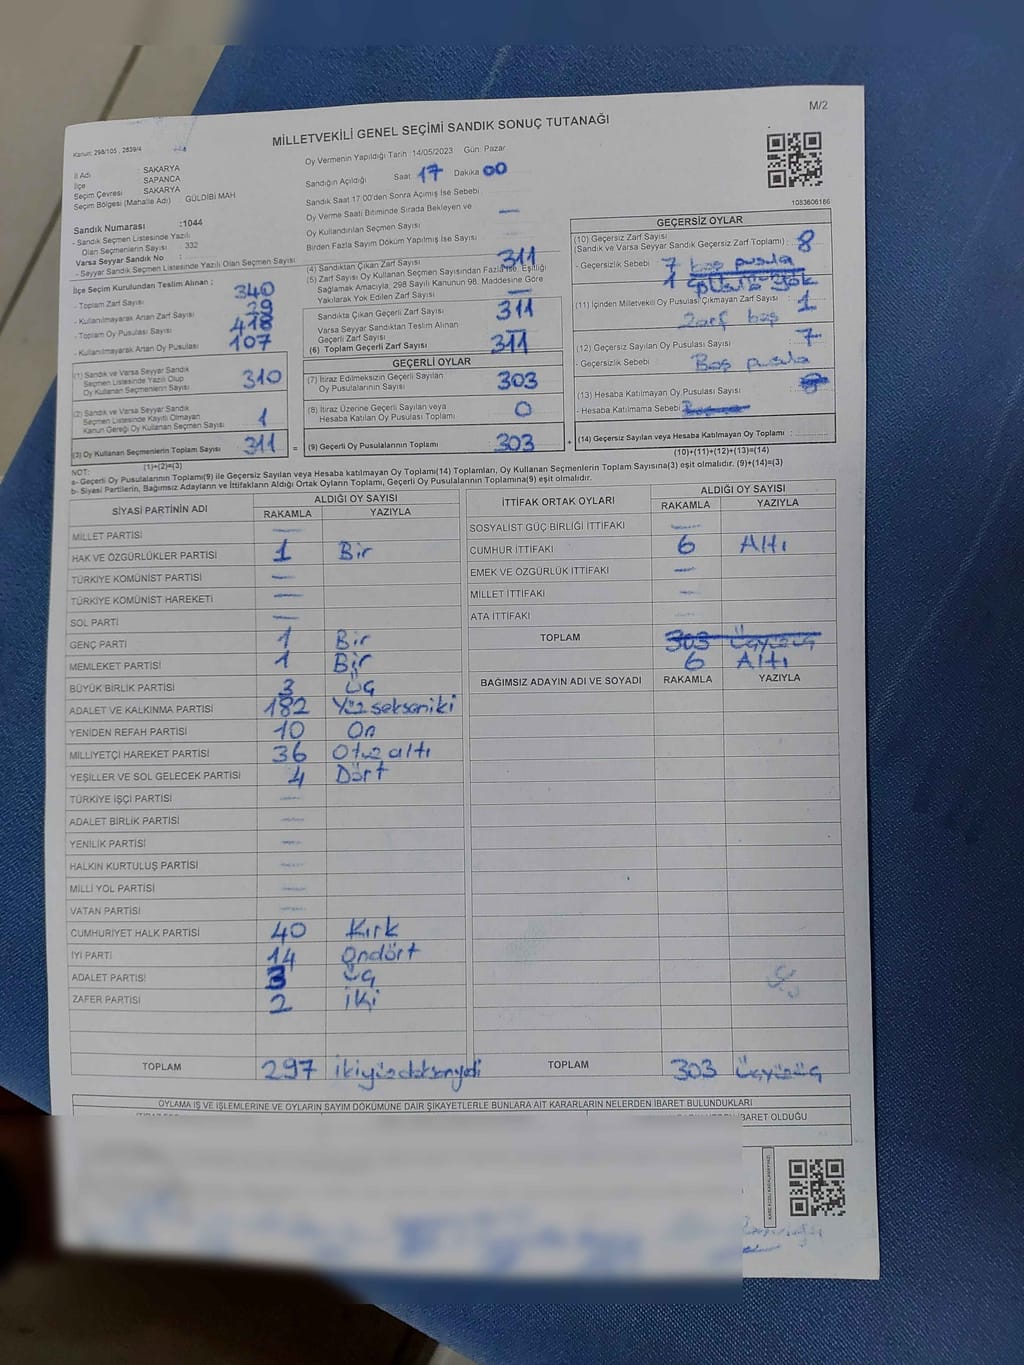 M/2
MİLLETVEKİLİ GENEL SEÇİMİ SANDIK SONUÇ TUTANAĞI
Kanun: 298/105 , 2839/4
Oy Vermenin Yapıldığı Tarih : 14/05/2023 Gün: Pazar
İl Adı : SAKARYA
İlçe : SAPANCA
Seçim Çevresi : SAKARYA
Seçim Bölgesi (Mahalle Adı) GÜLDİBİ MAH
Sandık Numarası :1044
- Sandık Seçmen Listesinde Yazılı
Olan Seçmenlerin Sayısı : 332
Varsa Seyyar Sandık No :
- Seyyar Sandık Seçmen Listesinde Yazılı Olan Seçmen Sayısı
İlçe Seçim Kurulundan Teslim Alınan ;
- Toplam Zarf Sayısı 340
- Kullanılmayarak Artan Zarf Sayısı 29
- Toplam Oy Pusulası Sayısı 418
- Kullanılmayarak Artan Oy Pusulası 107
(1) Sandık ve Varsa Seyyar Sandık
Seçmen Listesinde Yazılı Olup
Oy Kullanan Seçmenlerin Sayısı 310
(2) Sandık ve Varsa Seyyar Sandık
Seçmen Listesinde Kayıtlı Olmayan
Kanun Gereği Oy Kullanan Seçmen Sayısı 1
(3) Oy Kullanan Seçmenlerin Toplam Sayısı 311 =
(1)+(2)=(3)
Sandığın Açıldığı Saat 17 Dakika 00
Sandık Saat 17:00'den Sonra Açımış İse Sebebi
Oy Verme Saati Bitiminde Sırada Bekleyen ve
Oy Kullandırılan Seçmen Sayısı —
Birden Fazla Sayım Döküm Yapılmış İse Sayısı
(4) Sandıktan Çıkan Zarf Sayısı 311
(5) Zarf Sayısı Oy Kullanan Seçmen Sayısından Fazla İse, Eşitliği
Sağlamak Amacıyla, 298 Sayılı Kanunun 98. Maddesine Göre
Yakılarak Yok Edilen Zarf Sayısı —
Sandıkta Çıkan Geçerli Zarf Sayısı 311
Varsa Seyyar Sandıktan Teslim Alınan
Geçerli Zarf Sayısı —
(6) Toplam Geçerli Zarf Sayısı 311
GEÇERLİ OYLAR
(7) İtiraz Edilmeksizin Geçerli Sayılan
Oy Pusulalarının Sayısı 303
(8) İtiraz Üzerine Geçerli Sayılan veya
Hesaba Katılan Oy Pusulası Toplamı 0
(9) Geçerli Oy Pusulalarının Toplamı 303 +
1083606166
GEÇERSİZ OYLAR
(10) Geçersiz Zarf Sayısı
(Sandık ve Varsa Seyyar Sandık Geçersiz Zarf Toplamı) : 8
- Geçersizlik Sebebi : 7 boş pusula
1 pusula yok
(11) İçinden Milletvekili Oy Pusulası Çıkmayan Zarf Sayısı : 1
Zarf boş
(12) Geçersiz Sayılan Oy Pusulası Sayısı : 7
- Geçersizlik Sebebi Boş pusula
(13) Hesaba Katılmayan Oy Pusulası Sayısı
- Hesaba Katılmama Sebebi
(14) Geçersiz Sayılan veya Hesaba Katılmayan Oy Toplamı :
(10)+(11)+(12)+(13)=(14)
NOT:
a- Geçerli Oy Pusulalarının Toplamı(9) ile Geçersiz Sayılan veya Hesaba katılmayan Oy Toplamı(14) Toplamları, Oy Kullanan Seçmenlerin Toplam Sayısına(3) eşit olmalıdır. (9)+(14)=(3)
b- Siyasi Partilerin, Bağımsız Adayların ve İttifakların Aldığı Ortak Oyların Toplamı, Geçerli Oy Pusulalarının Toplamına(9) eşit olmalıdır.
SİYASİ PARTİNİN ADI ALDIĞI OY SAYISI
RAKAMLA YAZIYLA
MİLLET PARTİSİ —
HAK VE ÖZGÜRLÜKLER PARTİSİ 1 Bir
TÜRKİYE KOMÜNİST PARTİSİ —
TÜRKİYE KOMÜNİST HAREKETİ —
SOL PARTİ —
GENÇ PARTİ 1 Bir
MEMLEKET PARTİSİ 1 Bir
BÜYÜK BİRLİK PARTİSİ 3 Üç
ADALET VE KALKINMA PARTİSİ 182 Yüzsekseniki
YENİDEN REFAH PARTİSİ 10 On
MİLLİYETÇİ HAREKET PARTİSİ 36 Otuzaltı
YEŞİLLER VE SOL GELECEK PARTİSİ 4 Dört
TÜRKİYE İŞÇİ PARTİSİ —
ADALET BİRLİK PARTİSİ —
YENİLİK PARTİSİ —
HALKIN KURTULUŞ PARTİSİ —
MİLLİ YOL PARTİSİ —
VATAN PARTİSİ —
CUMHURİYET HALK PARTİSİ 40 Kırk
İYİ PARTİ 14 Ondört
ADALET PARTİSİ 3 Üç
ZAFER PARTİSİ 2 İki
TOPLAM 297 ikiyüzdoksanyedi
İTTİFAK ORTAK OYLARI ALDIĞI OY SAYISI
RAKAMLA YAZIYLA
SOSYALİST GÜÇ BİRLİĞİ İTTİFAKI —
CUMHUR İTTİFAKI 6 Altı
EMEK VE ÖZGÜRLÜK İTTİFAKI —
MİLLET İTTİFAKI —
ATA İTTİFAKI —
TOPLAM 303 Üçyüzüç
6 Altı
BAĞIMSIZ ADAYIN ADI VE SOYADI RAKAMLA YAZIYLA
TOPLAM 303 Üçyüzüç
OYLAMA İŞ VE İŞLEMLERİNE VE OYLARIN SAYIM DÖKÜMÜNE DAİR ŞİKAYETLERLE BUNLARA AİT KARARLARIN NELERDEN İBARET BULUNDUKLARI
İBARET OLDUĞU